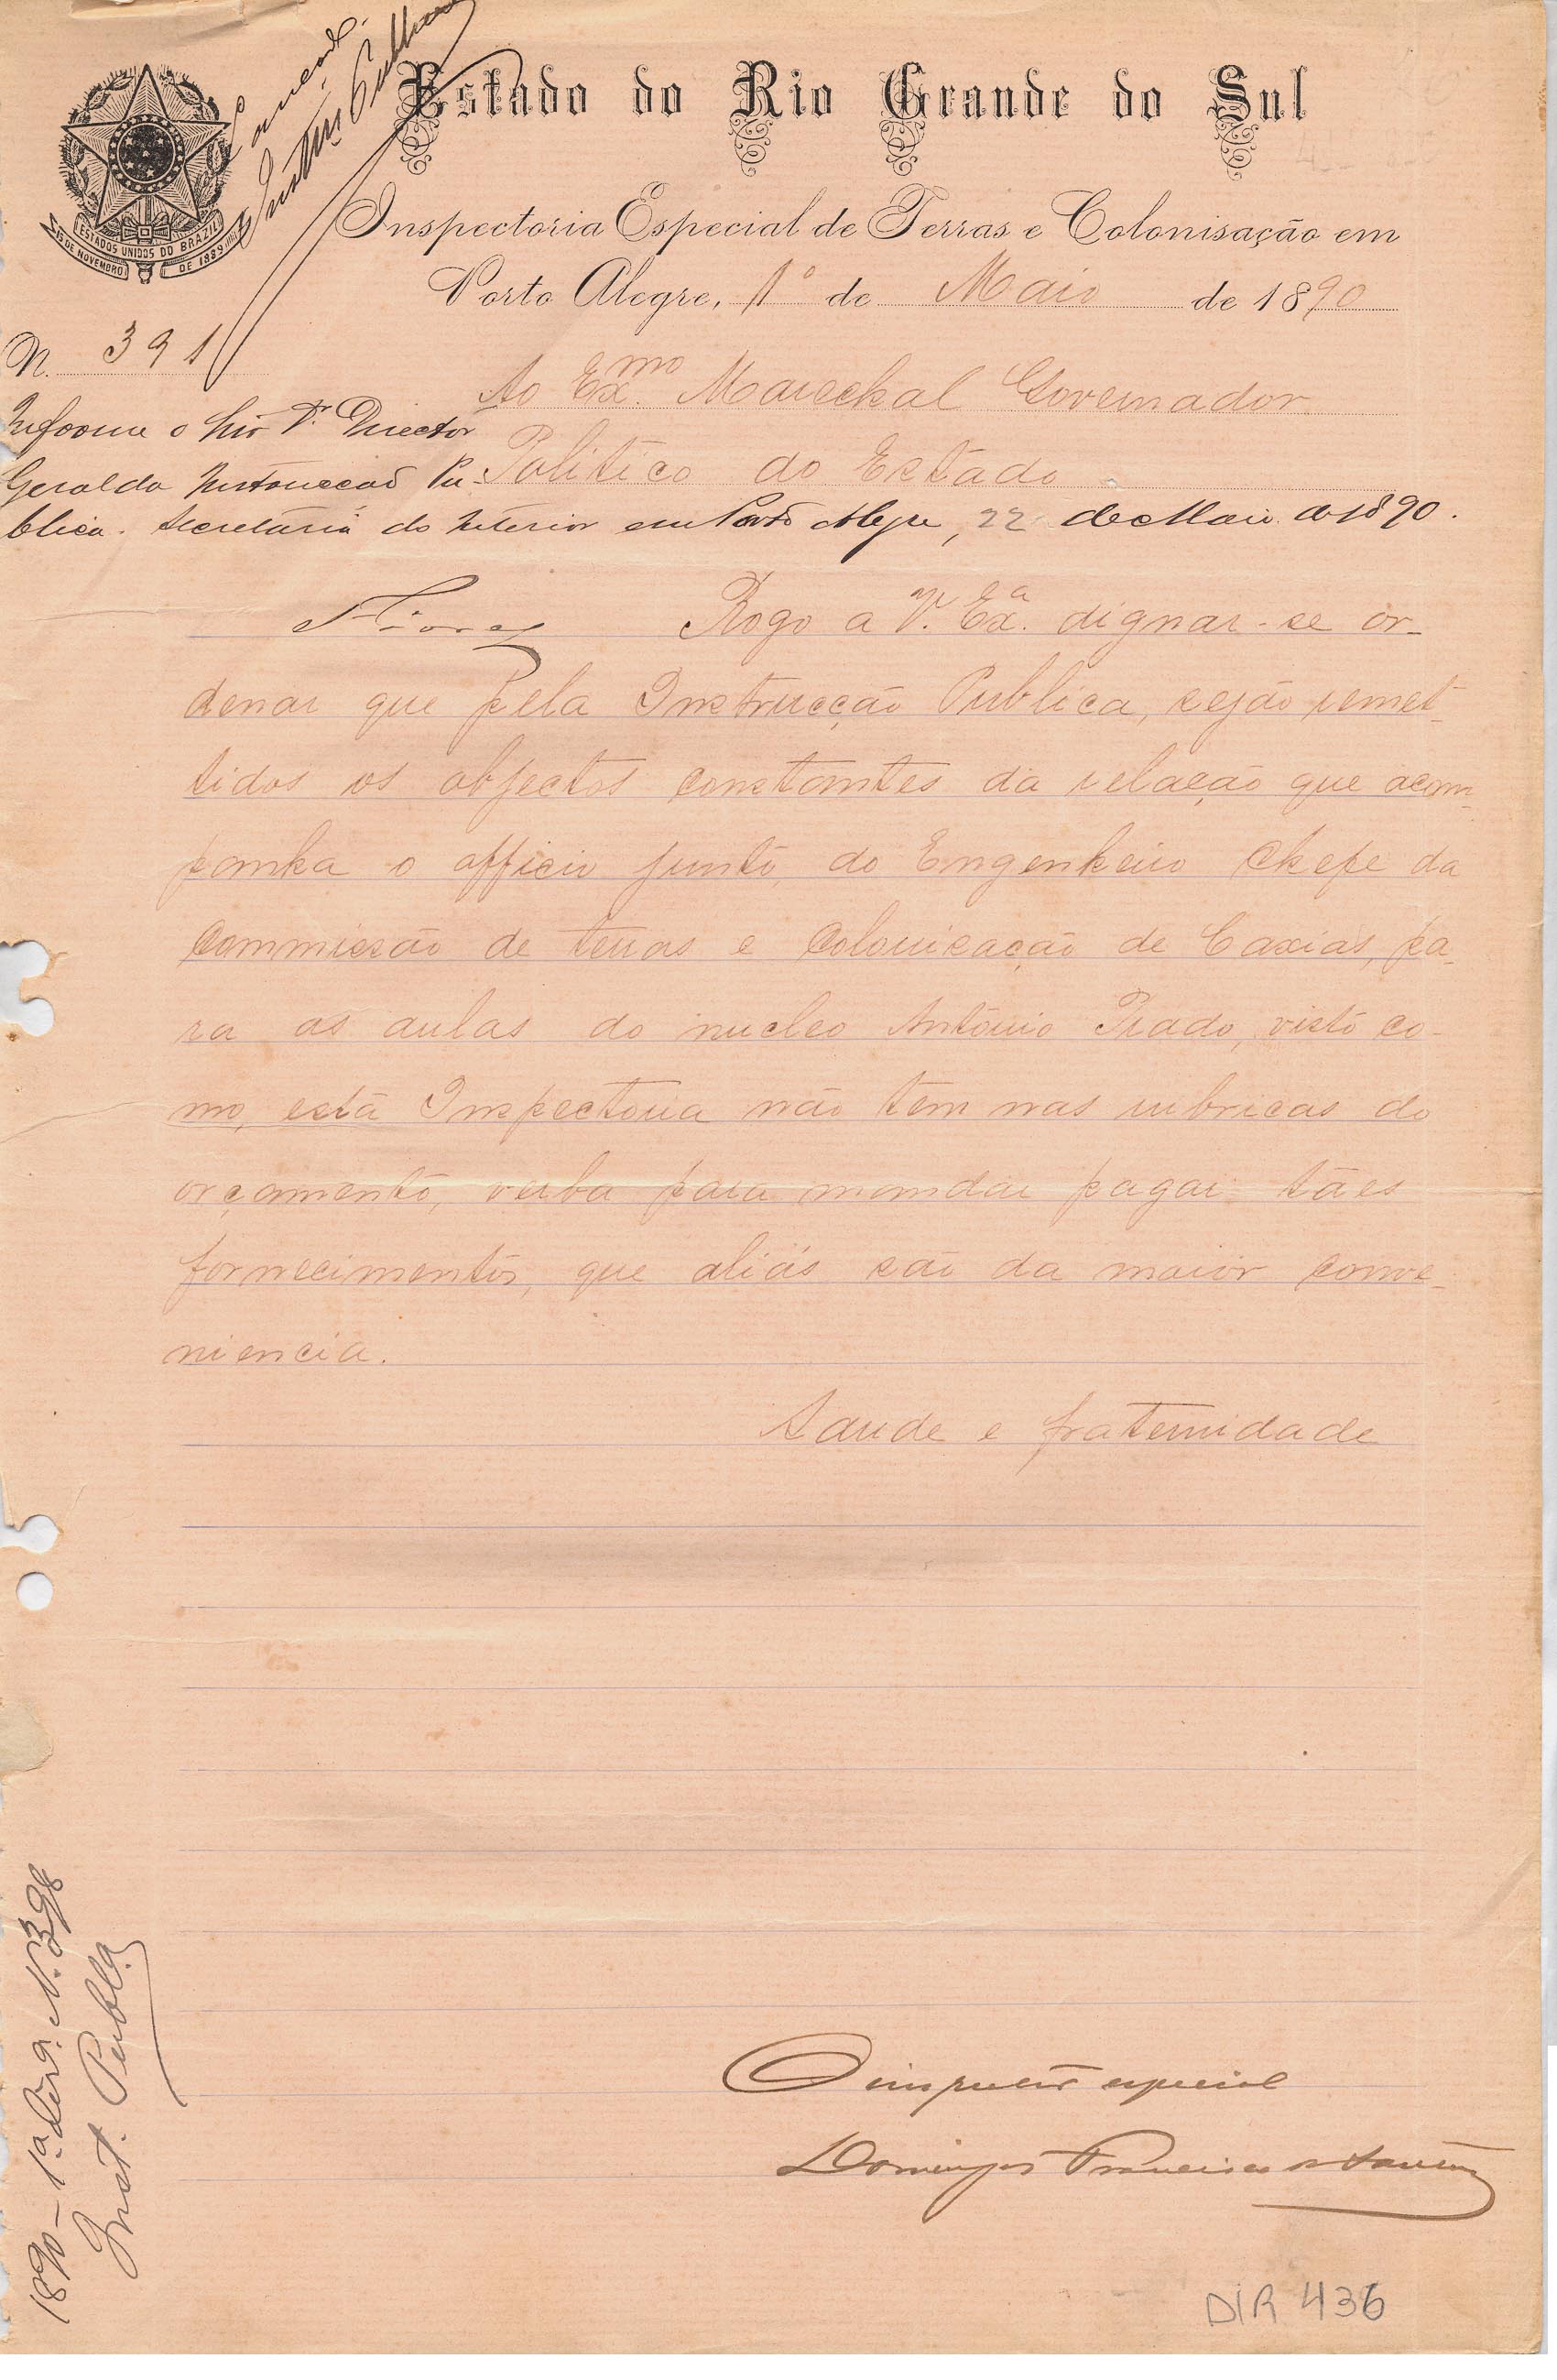 Instrução Publica
Estado do Rio Grande do Sul
ESTADOS UNIDOS DO BRAZIL
15 DE NOVEMBRO DE 1889
Inspectoria Especial de Terras e Colonisação em
Porto Alegre, 1º de Maio de 1890
N. 391
Ao Exmo. Marechal Governador
Politico do Estado.
Informe o Snr Dr. Director
Geral da Instrucção Pu-
blica. Secretaria do Interior em Porto Alegre, 22 de Maio de 1890.
Rogo a V. Exa. dignar-se or-
denar que pela Instrucção Publica, sejão remet-
tidos os objectos constantes da relação que acom-
panha o officio junto, do Engenheiro Chefe da
Commissão de terras e Colonisação de Caxias, pa-
ra as aulas do nucleo Antônio Prado, visto co-
mo, está Inspectoria não tem nas rubricas do
orçamento, verba para mandar pagar tães
fornecimentos, que aliás são da maior conve-
niencia.
Saude e fraternidade
O inspector especial
Domingos Francisco dos Santos
1890 - 1ª Dirª. N. 398
Inst. Publ.ª
DIR 436